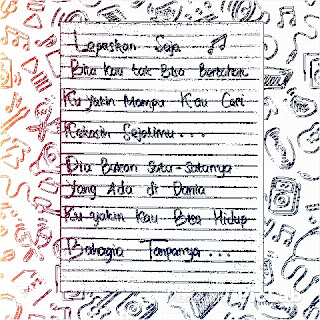 Lepaskan Saja
Bila kau tak Bisa Bertahan
Ku yakin Mampu Kau Cari
Kekasih Sejatimu...
Dia Bukan Satu-Satunya
Yang Ada di Dunia
Ku yakin Kau Bisa Hidup
Bahagia Tanpanya...